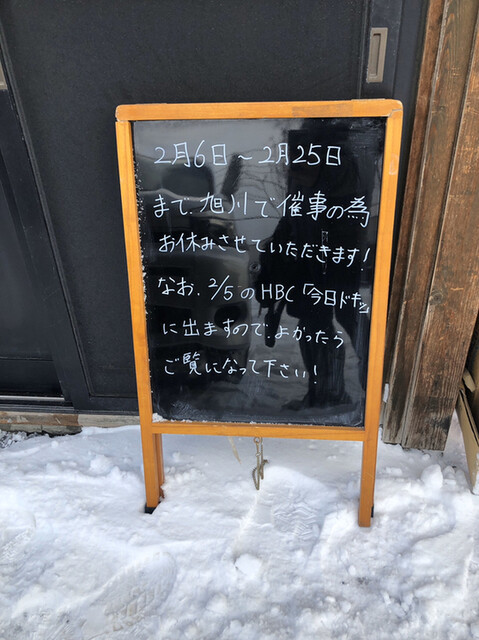 2月6日~2月25日
まで、旭川で催事の為
お休みさせていただきます!
なお、2/5のHBC「今日ドキッ」
に出ますので、よかったら
ご覧になって下さい!